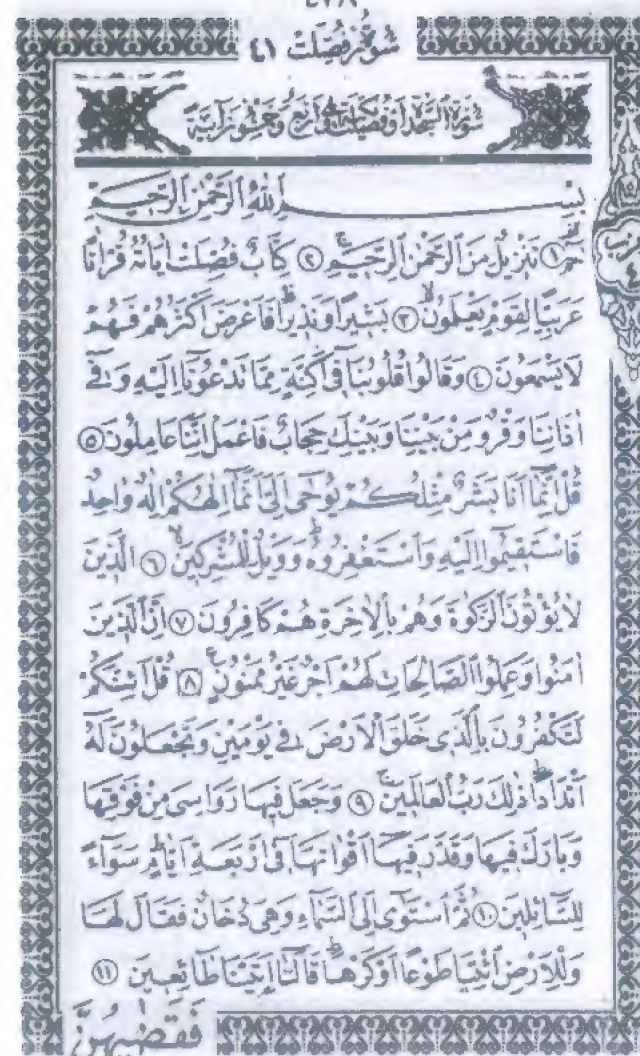 سُورَةُ فُصِّلَتْ ٤١
سُورَةُ السَّجْدَةِ اَوْ فُصِّلَتْ اَرْبَعٌ وَخَمْسُونَ اٰيَةً
بِسْمِ اللّٰهِ الرَّحْمٰنِ الرَّحِيمِ
حٰمٓ ١ تَنْزِيلٌ مِنَ الرَّحْمٰنِ الرَّحِيمِ ٢ كِتَابٌ فُصِّلَتْ اٰيَاتُهُ قُرْاٰنًا
عَرَبِيًّا لِقَوْمٍ يَعْلَمُونَ ٣ بَشِيرًا وَنَذِيرًا فَاَعْرَضَ اَكْثَرُهُمْ فَهُمْ
لَا يَسْمَعُونَ ٤ وَقَالُوا قُلُوبُنَا فٓى اَكِنَّةٍ مِمَّا تَدْعُونَٓا اِلَيْهِ وَفٓى
اٰذَانِنَا وَقْرٌ وَمِنْ بَيْنِنَا وَبَيْنِكَ حِجَابٌ فَاعْمَلْ اِنَّنَا عَامِلُونَ ٥
قُلْ اِنَّمَٓا اَنَا بَشَرٌ مِثْلُكُمْ يُوحٰٓى اِلَىَّ اَنَّمَٓا اِلٰهُكُمْ اِلٰهٌ وَاحِدٌ
فَاسْتَقِيمُٓوا اِلَيْهِ وَاسْتَغْفِرُوهُ وَوَيْلٌ لِلْمُشْرِكِينَ ٦ اَلَّذِينَ
لَا يُؤْتُونَ الزَّكٰوةَ وَهُمْ بِالْاٰخِرَةِ هُمْ كَافِرُونَ ٧ اِنَّ الَّذِينَ
اٰمَنُوا وَعَمِلُوا الصَّالِحَاتِ لَهُمْ اَجْرٌ غَيْرُ مَمْنُونٍ ٨ قُلْ اَئِنَّكُمْ
لَتَكْفُرُونَ بِالَّذِى خَلَقَ الْاَرْضَ فِى يَوْمَيْنِ وَتَجْعَلُونَ لَهُٓ
اَنْدَادًا ذٰلِكَ رَبُّ الْعَالَمِينَ ٩ وَجَعَلَ فِيهَا رَوَاسِىَ مِنْ فَوْقِهَا
وَبَارَكَ فِيهَا وَقَدَّرَ فِيهَٓا اَقْوَاتَهَا فٓى اَرْبَعَةِ اَيَّامٍ سَوَٓاءً
لِلسَّٓائِلِينَ ١٠ ثُمَّ اسْتَوٰٓى اِلَى السَّمَٓاءِ وَهِىَ دُخَانٌ فَقَالَ لَهَا
وَلِلْاَرْضِ ائْتِيَا طَوْعًا اَوْ كَرْهًا قَالَتَٓا اَتَيْنَا طَٓائِعِينَ ١١
فَقَضٰيهُنَّ